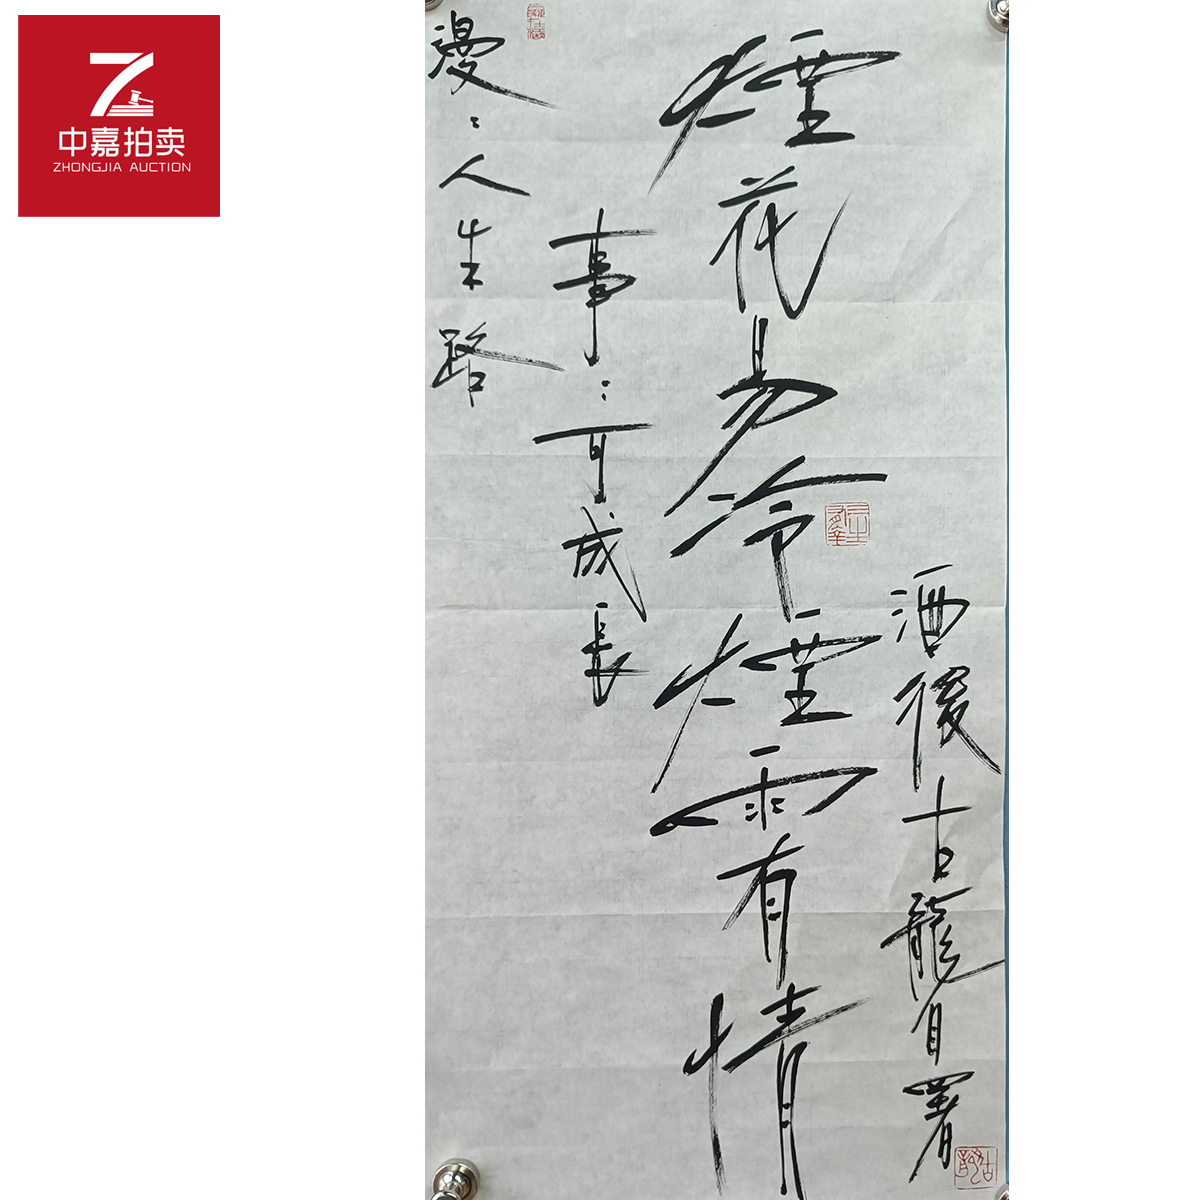 中嘉拍卖
ZHONGJIA AUCTION
漫〻人生路
事〻可成長
煙花易冷煙雨有情
酒後古龍自署